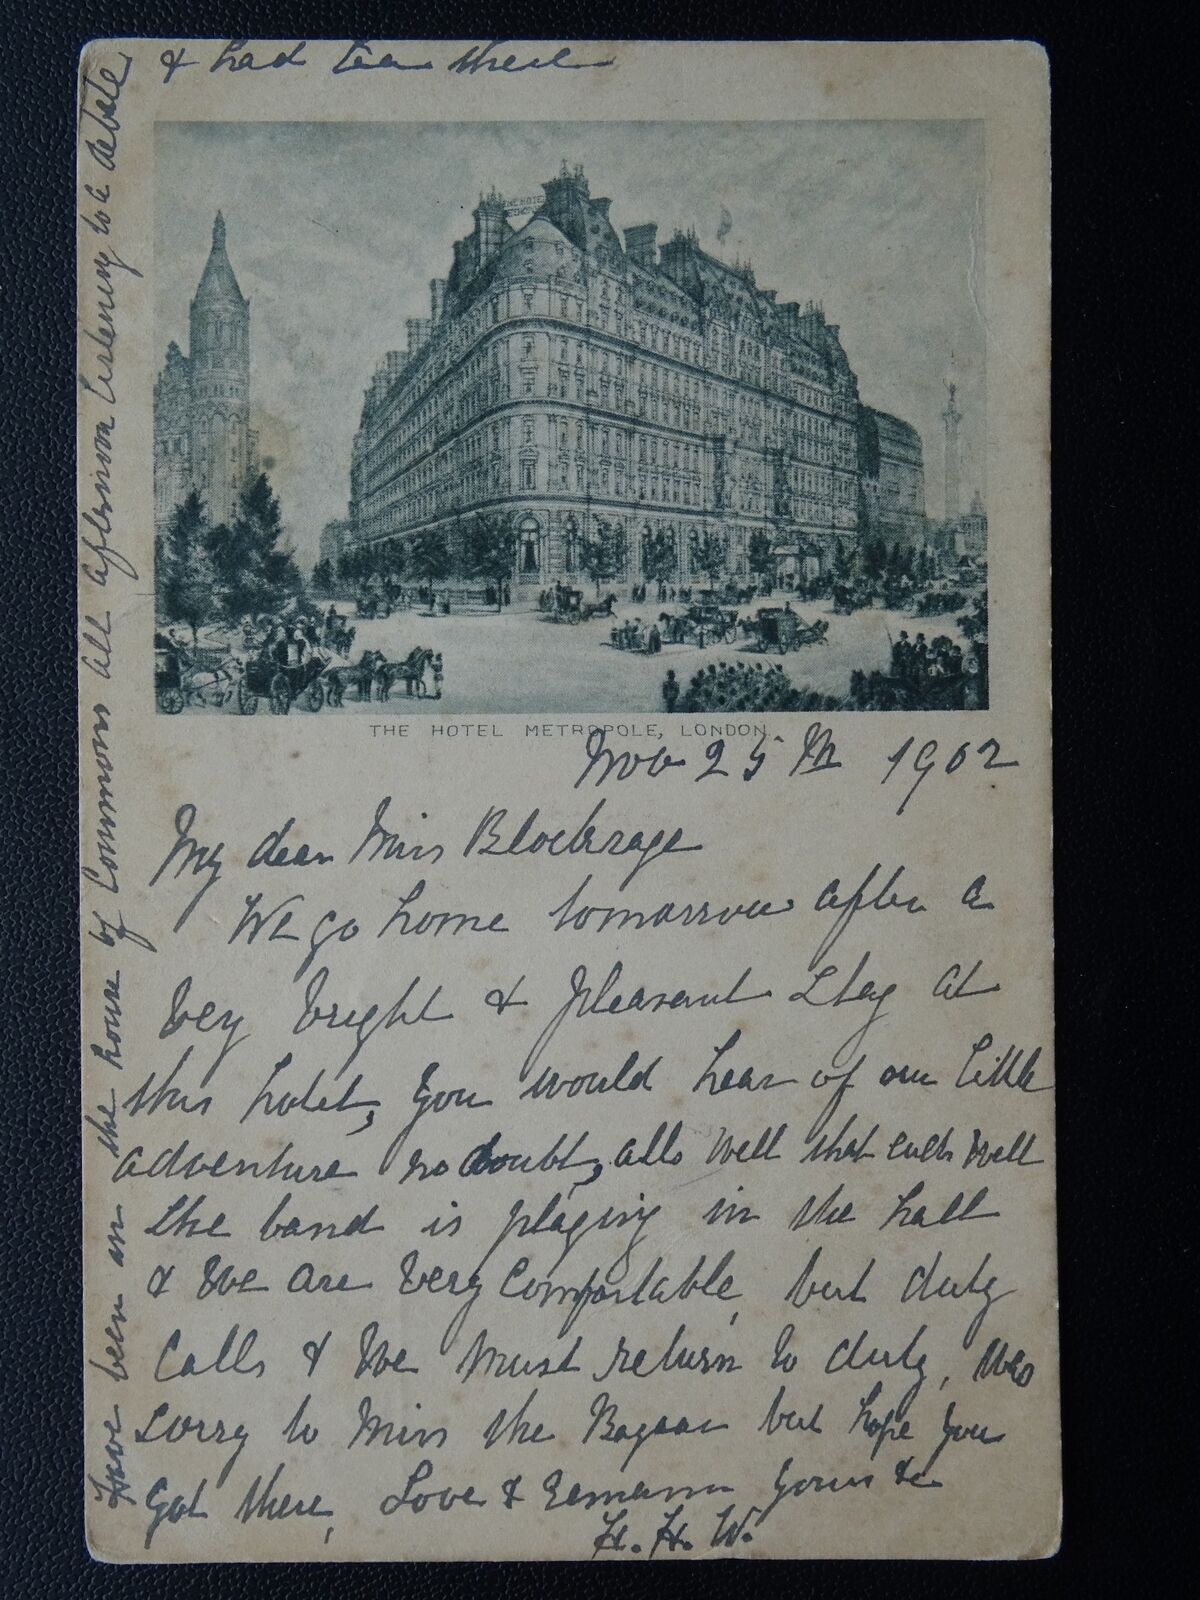 & had tea there
THE HOTEL METROPOLE, LONDON
Nov 25th 1902
My dear Miss
We go home tomorrow after a
very bright & pleasant stay at
this hotel, you would hear of our little
adventure no doubt, alls well that ends well
the band is playing in the hall
& we are very comfortable, but duty
calls & we must return to duty, was
sorry to miss the Bazaar but hope you
got there, Love & remain yours &c
H. H. W.
Have been in the house of Commons all afternoon listening to a debate